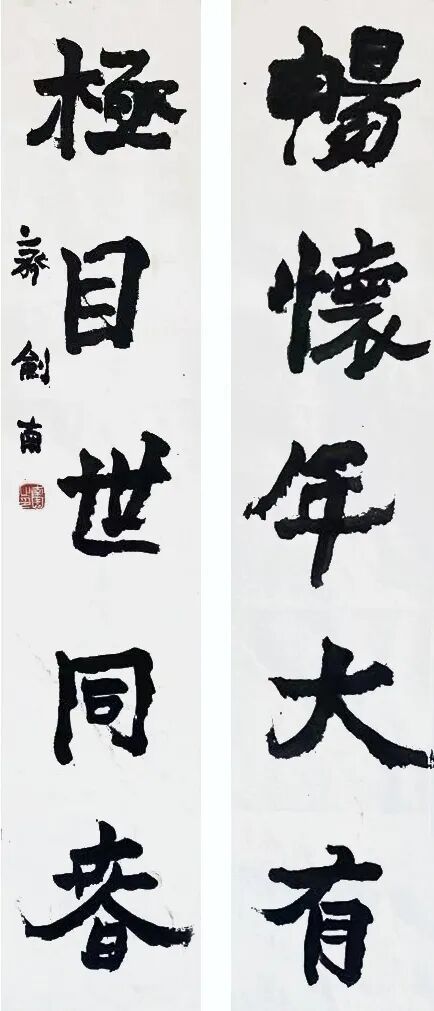 暢懷年大有
極目世同春
劍南